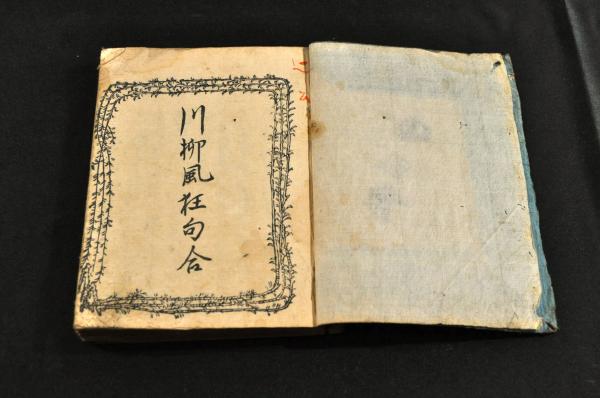 川柳風狂句合